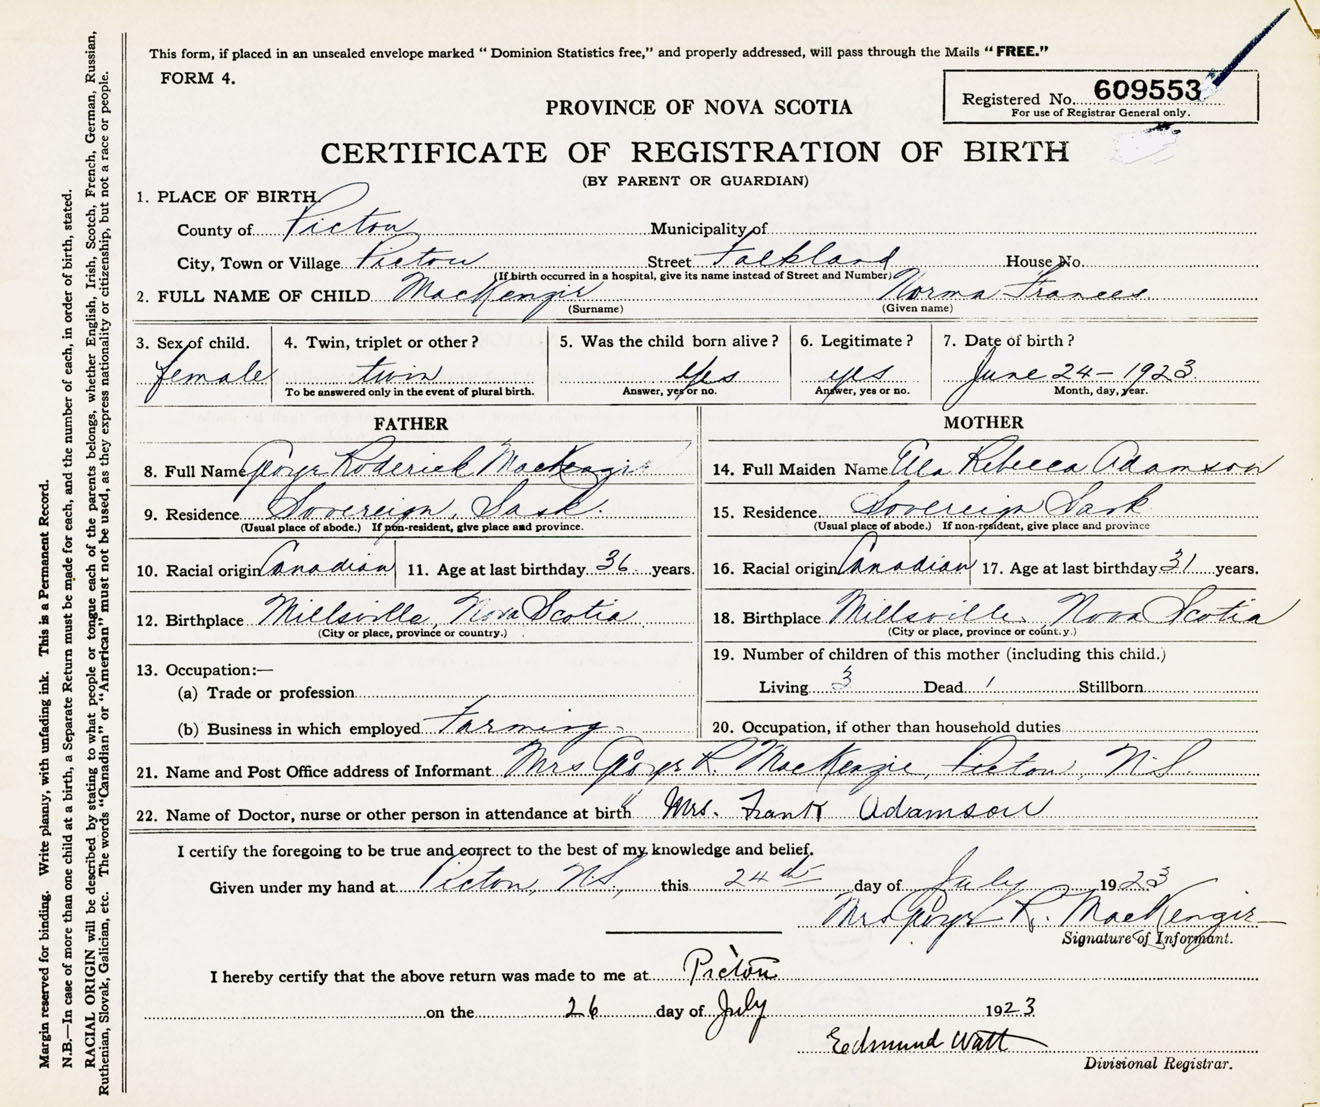 This form, if placed in an unsealed envelope marked “ Dominion Statistics free,” and properly addressed, will pass through the Mails “ FREE.”
FORM 4.
Registered No. 609553
For use of Registrar General only.
PROVINCE OF NOVA SCOTIA
CERTIFICATE OF REGISTRATION OF BIRTH
(BY PARENT OR GUARDIAN)
1. PLACE OF BIRTH
County of Pictou Municipality of
City, Town or Village Pictou Street Falkland House No.
(If birth occurred in a hospital, give its name instead of Street and Number)
2. FULL NAME OF CHILD MacKenzie Norma Frances
(Surname) (Given name)
3. Sex of child. 4. Twin, triplet or other? 5. Was the child born alive? 6. Legitimate? 7. Date of birth?
female twin Yes yes June 24 - 1923
To be answered only in the event of plural birth. Answer, yes or no. Answer, yes or no. Month, day, year.
FATHER MOTHER
8. Full Name George Roderick MacKenzie 14. Full Maiden Name Ula Rebecca Adamson
9. Residence Sovereign, Sask. 15. Residence Sovereign Sask
(Usual place of abode.) If non-resident, give place and province. (Usual place of abode.) If non-resident, give place and province
10. Racial origin Canadian 11. Age at last birthday 36 years. 16. Racial origin Canadian 17. Age at last birthday 31 years.
12. Birthplace Millsville, Nova Scotia 18. Birthplace Millsville, Nova Scotia
(City or place, province or country.) (City or place, province or county.)
13. Occupation:— 19. Number of children of this mother (including this child.)
(a) Trade or profession Living 3 Dead 1 Stillborn
(b) Business in which employed Farming 20. Occupation, if other than household duties
21. Name and Post Office address of Informant Mrs George R. MacKenzie, Pictou, N.S.
22. Name of Doctor, nurse or other person in attendance at birth Mrs. Frank Adamson
I certify the foregoing to be true and correct to the best of my knowledge and belief.
Given under my hand at Pictou, N.S., this 24th day of July 1923
Mrs George R. MacKenzie
Signature of Informant.
I hereby certify that the above return was made to me at Pictou
on the 26 day of July 1923
Edmund Watt
Divisional Registrar.
Margin reserved for binding. Write plainly, with unfading ink. This is a Permanent Record.
N.B.—In case of more than one child at a birth, a Separate Return must be made for each, and the number of each, in order of birth, stated.
RACIAL ORIGIN will be described by stating to what people or tongue each of the parents belongs, whether English, Irish, Scotch, French, German, Russian,
Ruthenian, Slovak, Galician, etc. The words “Canadian” or “American” must not be used, as they express nationality or citizenship, but not a race or people.